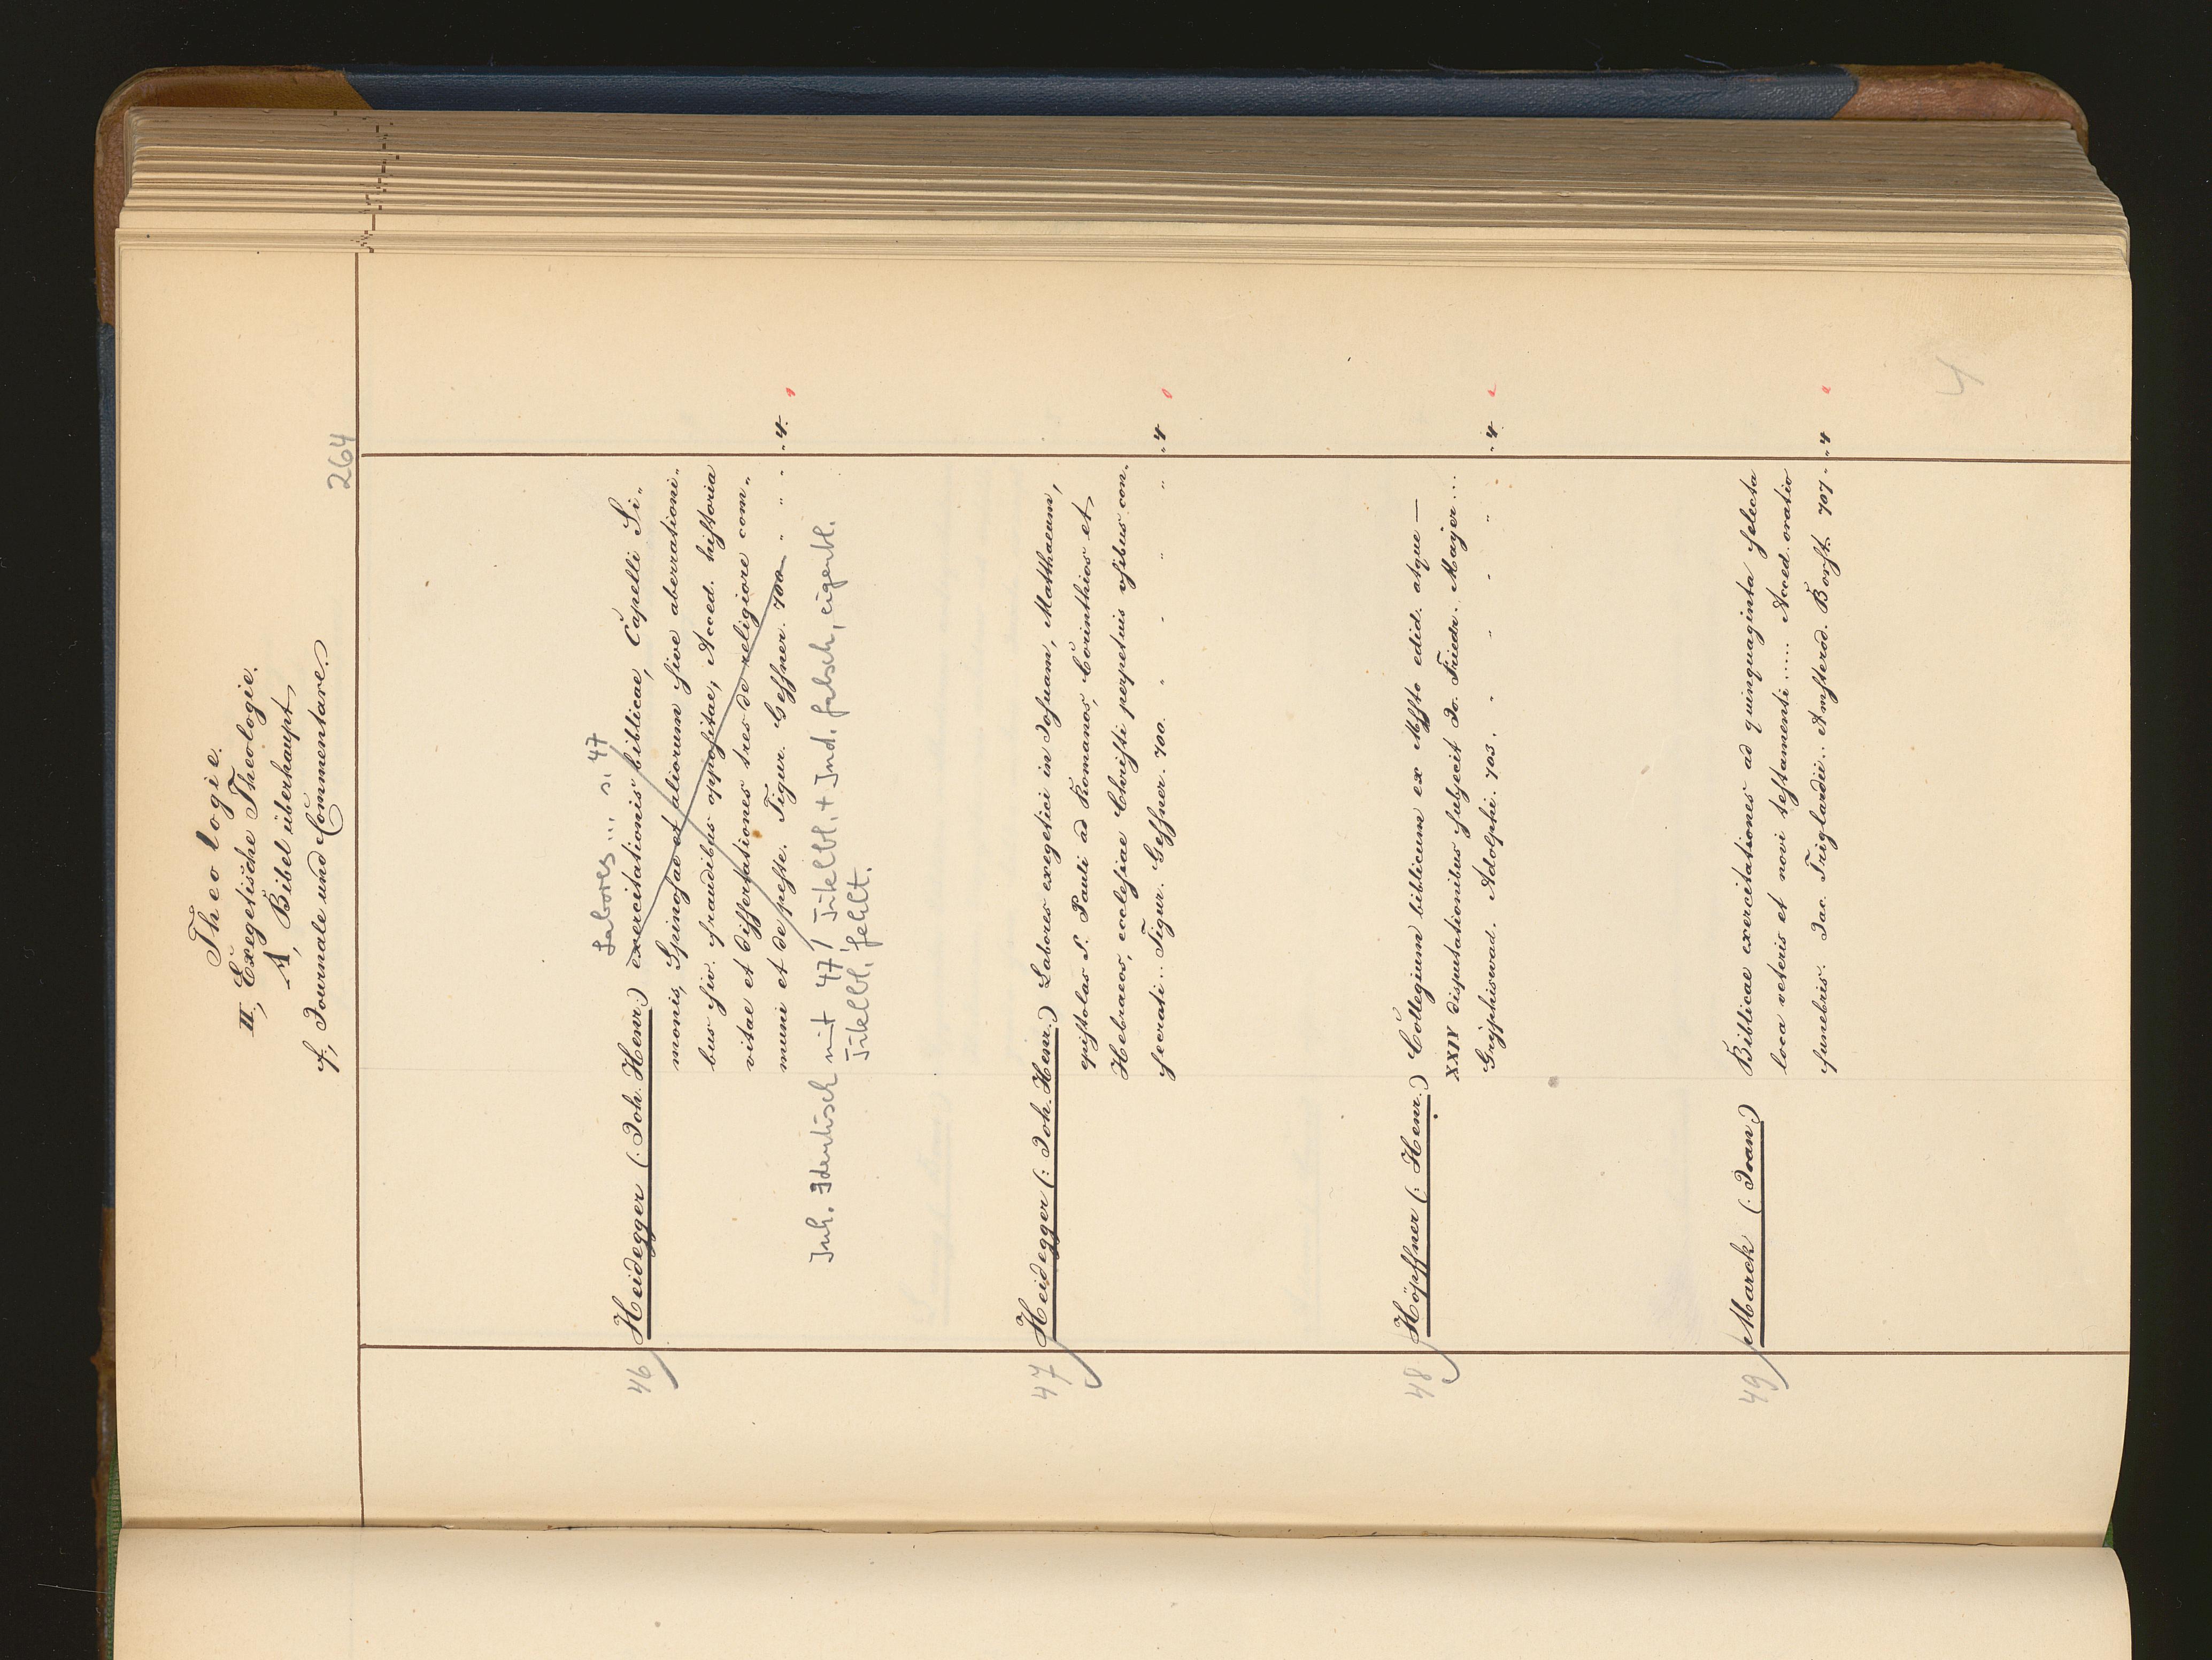 Theologie.
II, Exegetische Theologie.
A, Bibel überhaupt,
f, Journale und Commentare.
264
Labores ... s. 47
46 Heidegger (: Joh. Henr.) exercitationis biblicae, Capelli Si„
monis, Spinosae et aliorum sive aberrationi„
bus siv. fraudibus oppositae, Acced. historia
vitae et dissertationes tres de religiore com„
muni et de pesse. Tigur. Gessner. 700 - " " - „ 4.
Inh. Identisch mit 47, Titelbl. + Ind. falsch, eigentl.
Titelbl. fehlt.
47 Heidegger (: Joh. Henr.) Labores exegetici in Josuam, Matthaeum,
epistolas S. Pauli ad Romanos, Corinthios et
Hebraeos, ecclesiae Christi perpetuis usibus con„
secrati .. Tigur. Gessner. 700. " - " " „ 4
48 Höpffner (: Henr.) Collegium biblicum ex Msto edid. atque —
XXIV disputationibus subjecit Jo. Friedr. Mayer ...
Gryphiswad. Adolphi. 703. " - - " „ 4
49 Marck (: Joan.) Biblicae exercitationes ad quinquaginta selecta
loca veteris et novi testamenti ..... Acced. oratio
funebris. Jac. Triglandii.. Amsterd. Borst. 707 - „ 4
4